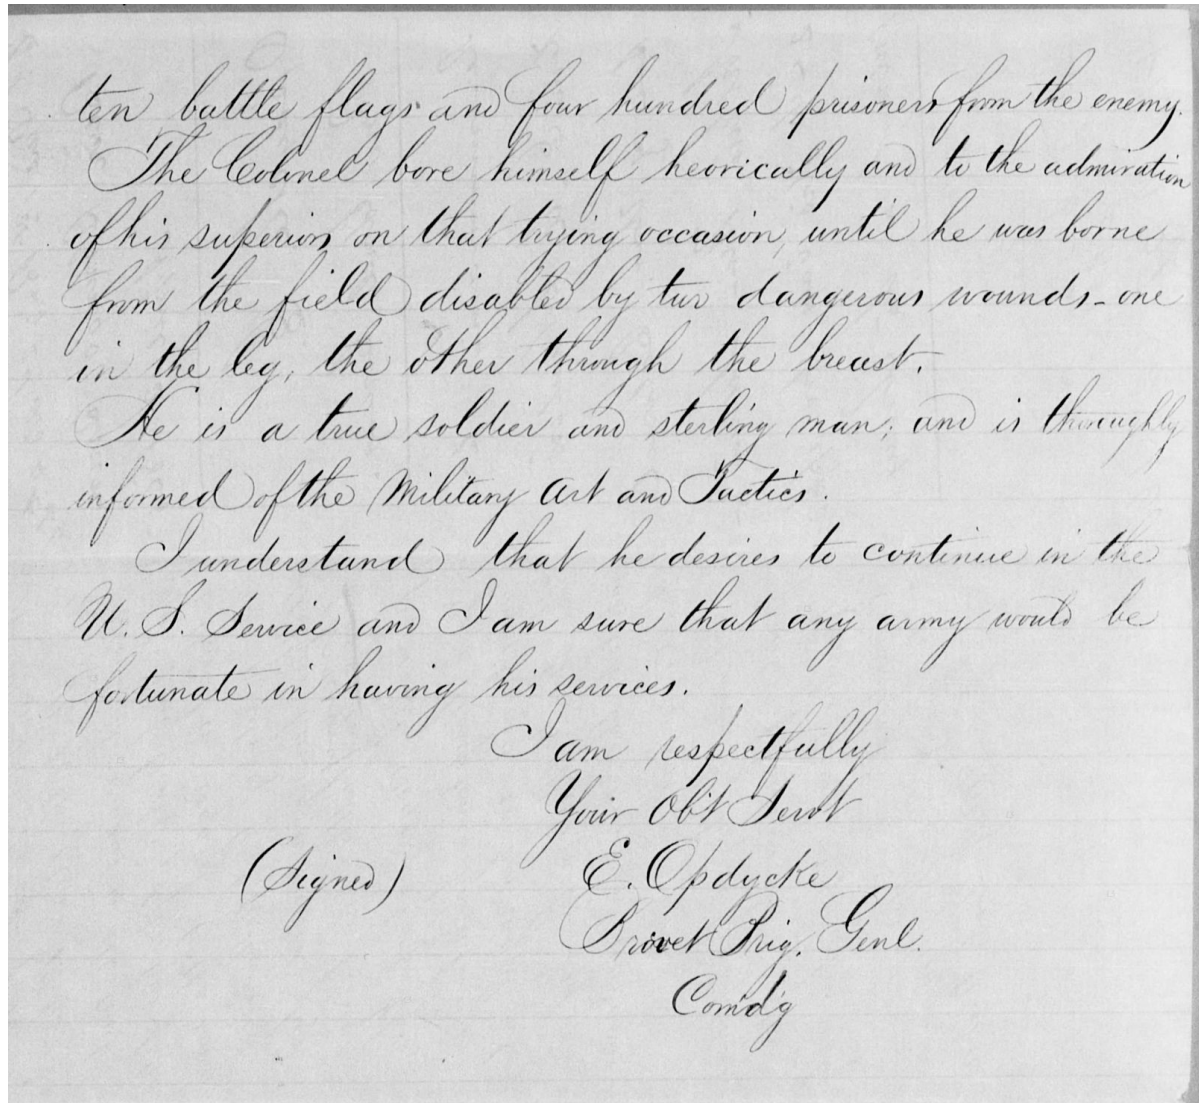 ten battle flags and four hundred prisoners from the enemy.
The Colonel bore himself heorically and to the admiration
of his superiors on that trying occasion, until he was borne
from the field disabled by two dangerous wounds - one
in the leg, the other through the breast.
He is a true soldier and sterling man; and is thoroughly
informed of the Military Art and Tactics.
I understand that he desires to continue in the
U. S. Service and I am sure that any army would be
fortunate in having his services.
I am respectfully
Your Obt Servt
(Signed) E. Opdycke
Brevet Brig. Genl.
Comd'g